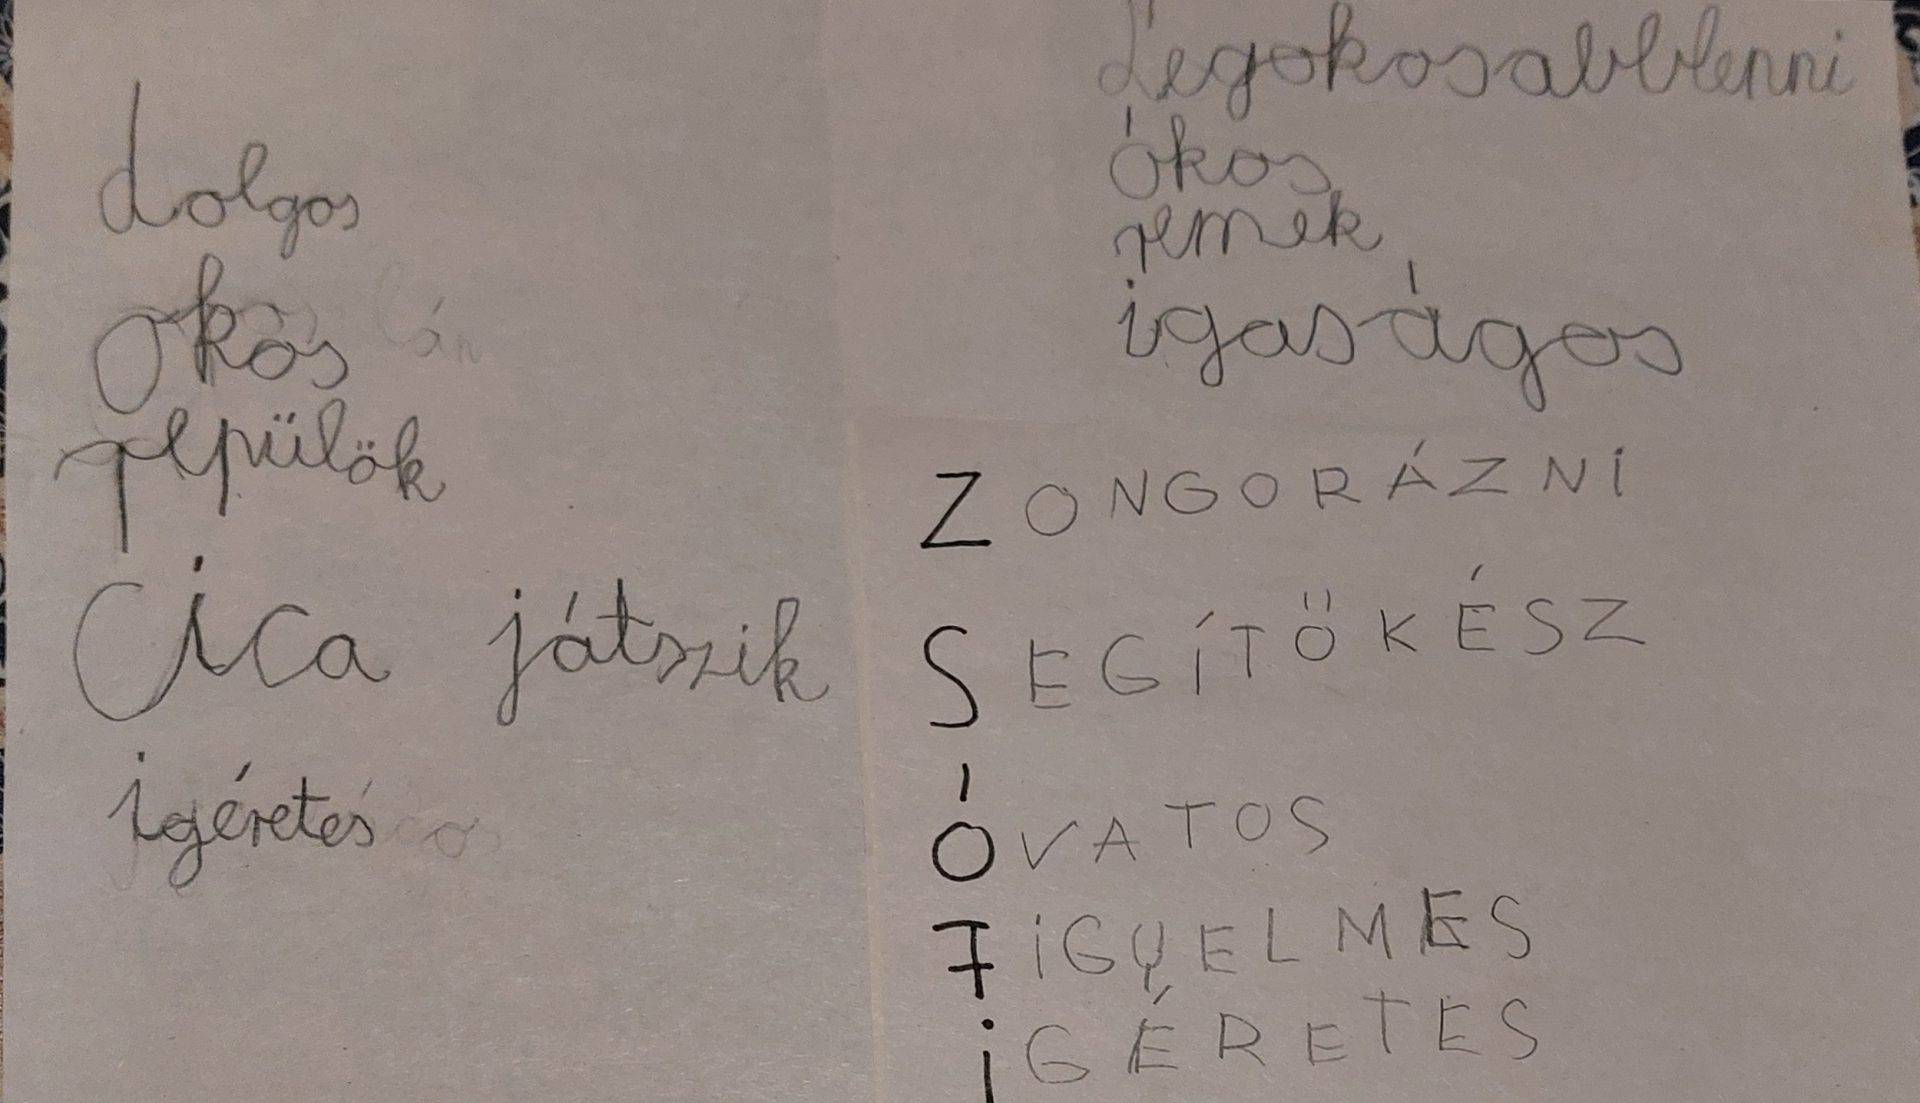 dolgos
okos
repülök
ica játszik
igéretes
Legokosabb lenni
ókos
remek
igaságos
ZONGORÁZNI
SEGÍTŐKÉSZ
ÓVATOS
FIGYELMES
iGÉRETES